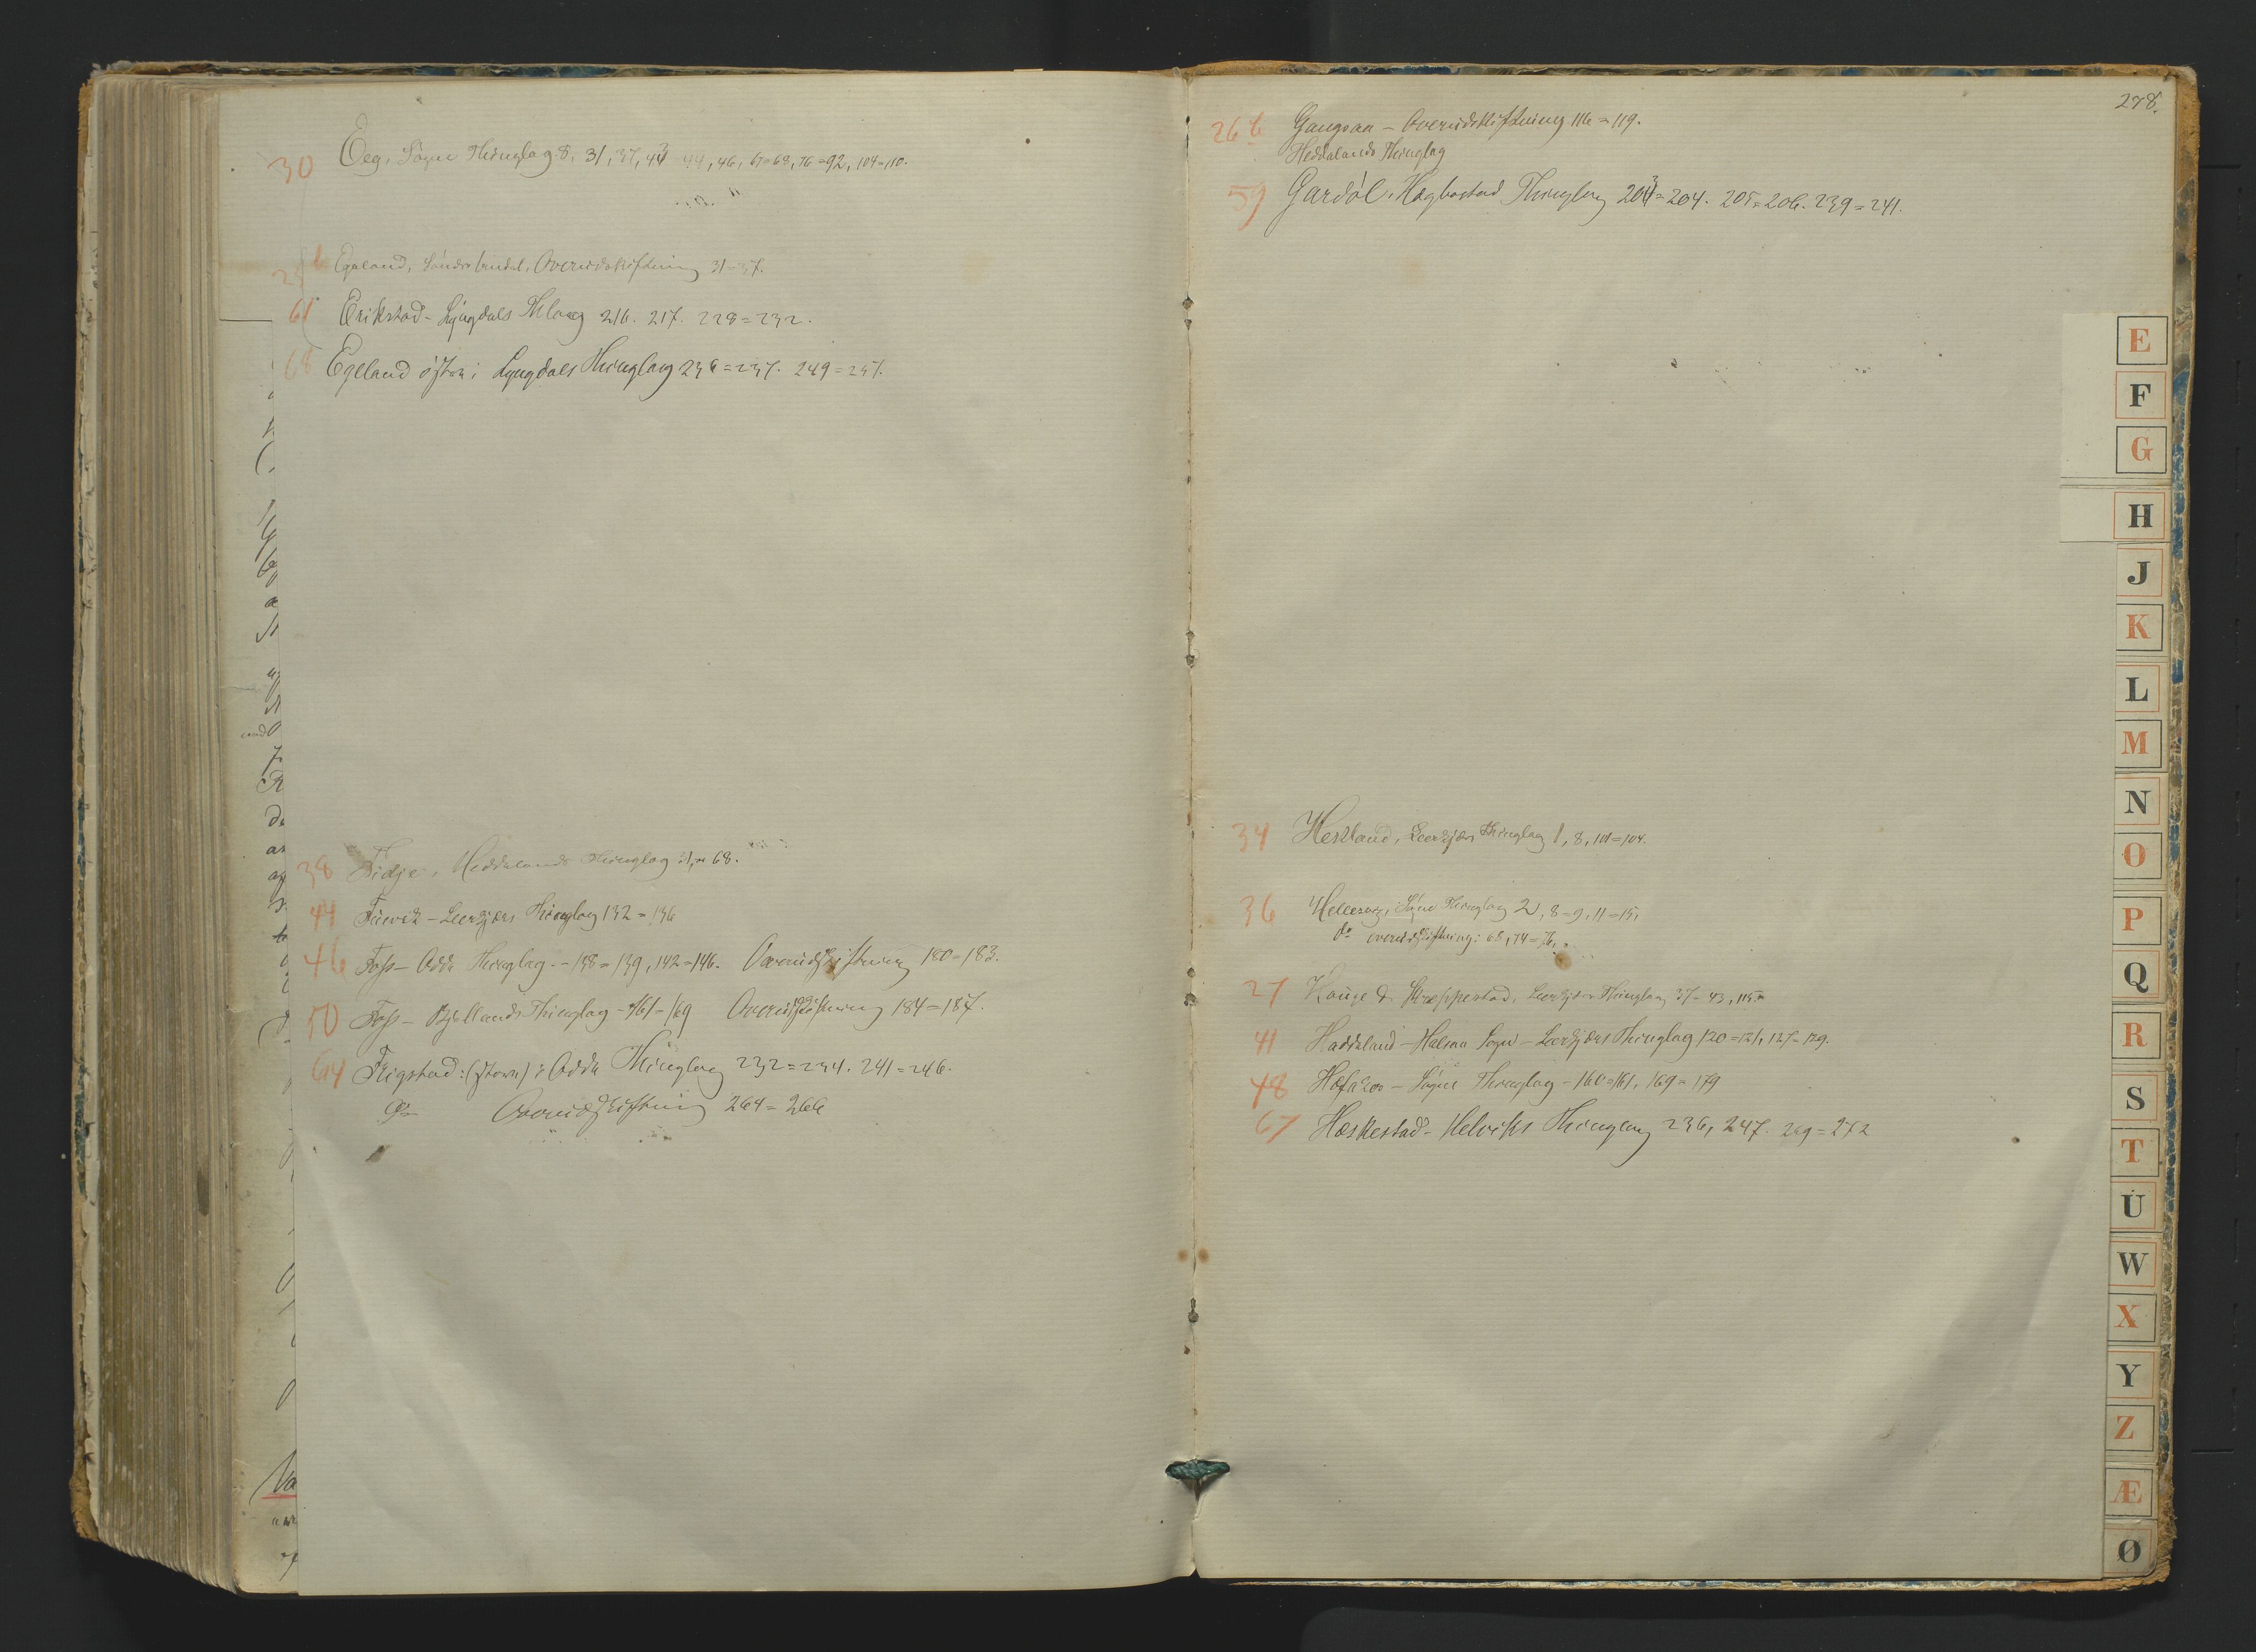 30 Eeg, Søgne Thinglag 8, 31, 37, 43 44, 46, 67=68, 76=92, 104=110.
Egeland, Søndre Undal, Overudskiftning 31=37.
61 Erikstad - Lyngdals Thlag 216. 217. 228=232.
Egeland østre i Lyngdals Thinglag 236=237. 249=251.
38 Fidje, Heddelands Thinglag 31, 68.
44 Fuevik - Leerkjærs Thinglag 132=136
46 Foss - Odde Thinglag - 138=139, 142=146. Overudskiftning 180=183.
50 Foss - Bjellands Thinglag - 161-169 Overudskiftning 184=187.
64 Frigstad: (ytre) i Odde Thinglag 232=234. 241=246.
Do Overudskiftning 264=266
278.
26 b Gangsaa - Overudskiftning 116=119.
Heddelands Thinglag
59 Gardøl, Hægbostad Thinglag 203=204. 205=206. 239=241.
34 Hesland, Leerkjærs Thinglag 1, 8, 101=104.
36 Hellesvig, Søgne Thinglag 2, 8=9, 11=15,
do overudskiftning: 68, 74=76,
27 Hauge & Skreppestad, Leerkjærs Thinglag 37=43, 115
41 Haddeland - Halsaa Sogn - Leerkjærs Thinglag 120=121, 127=129.
48 Thinglag - 160=161, 169=179
67 Hæskestad - Helviks Thinglag 236, 247. 269=272
E
F
G
H
J
K
L
M
N
O
P
Q
R
S
T
U
W
X
Y
Z
Æ
Ø